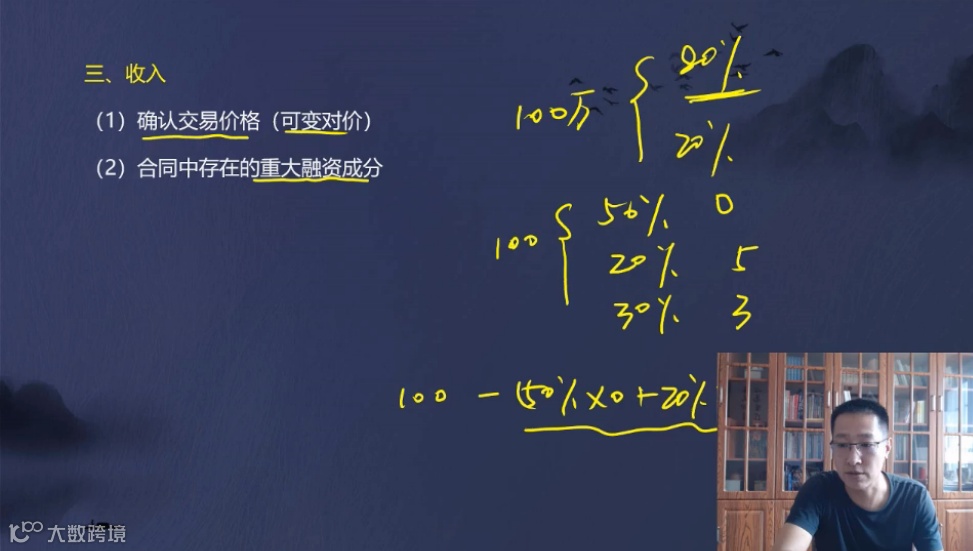 三、收入
（1）确认交易价格（可变对价）
（2）合同中存在的重大融资成分
100万 { 80%
20%
100 { 50% 0
20% 5
30% 3
100 - (50%×0+20%
大数跨境